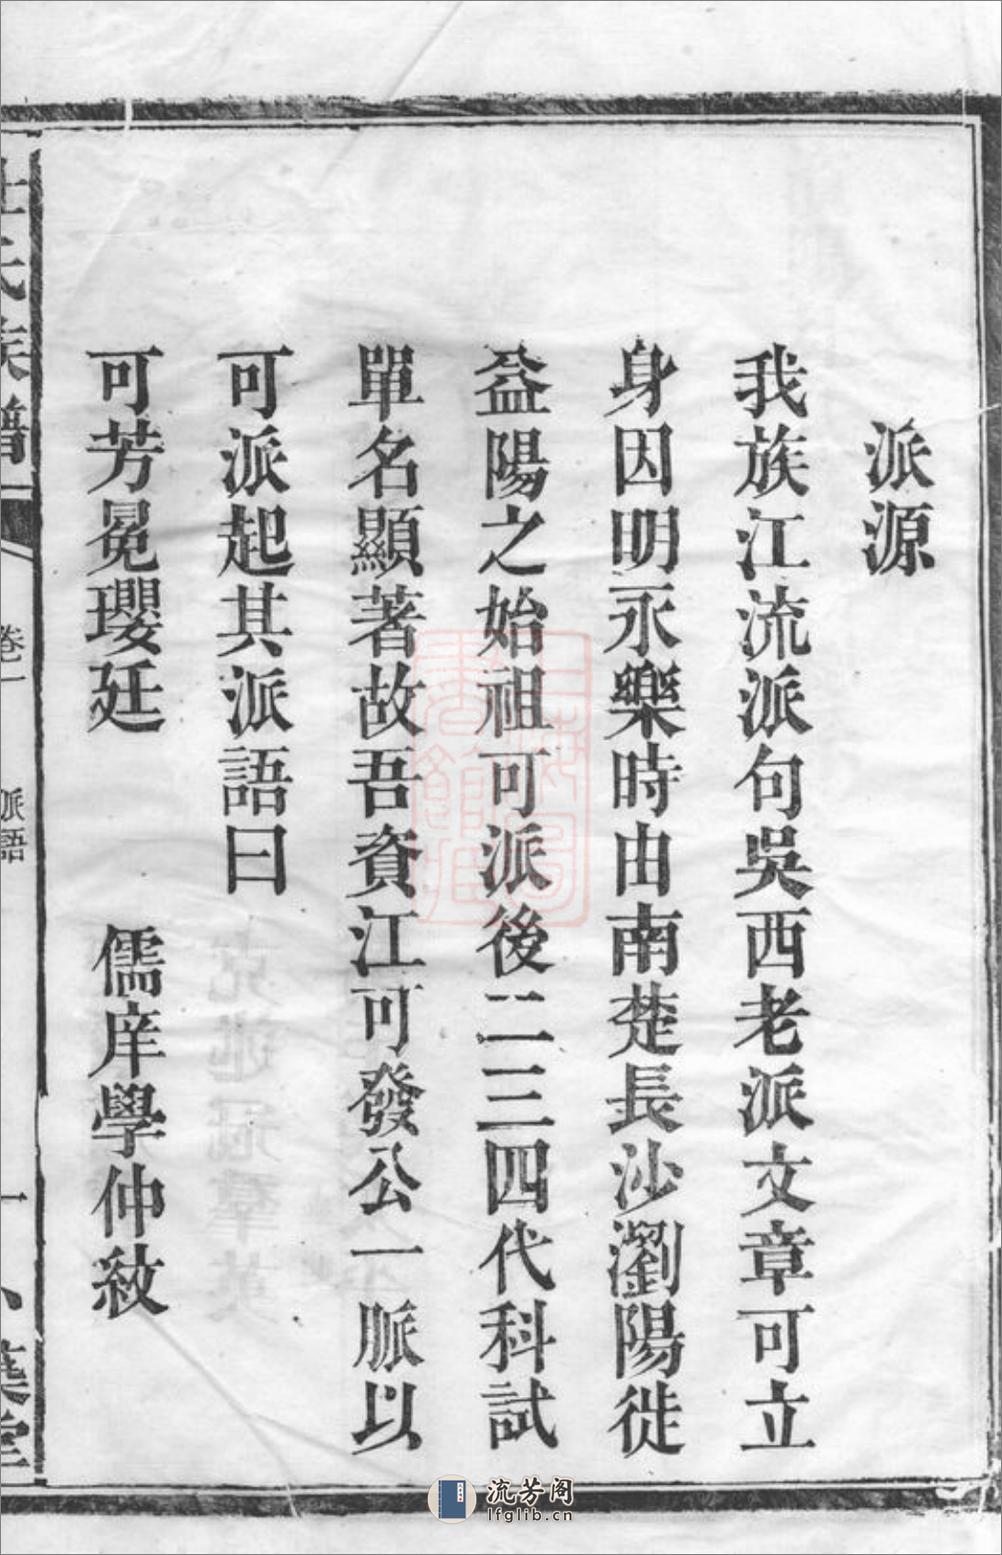 派源
我族江流派句吳西老派文章可立
身因明永樂時由南楚長沙瀏陽徙
益陽之始祖可派後二三四代科試
單名顯著故吾資江可發公一脈以
可派起其派語曰
可芳冕瓔廷　儒庠學仲紋
氏族譜
卷一
派語
一
流芳阁
lfglib.cn